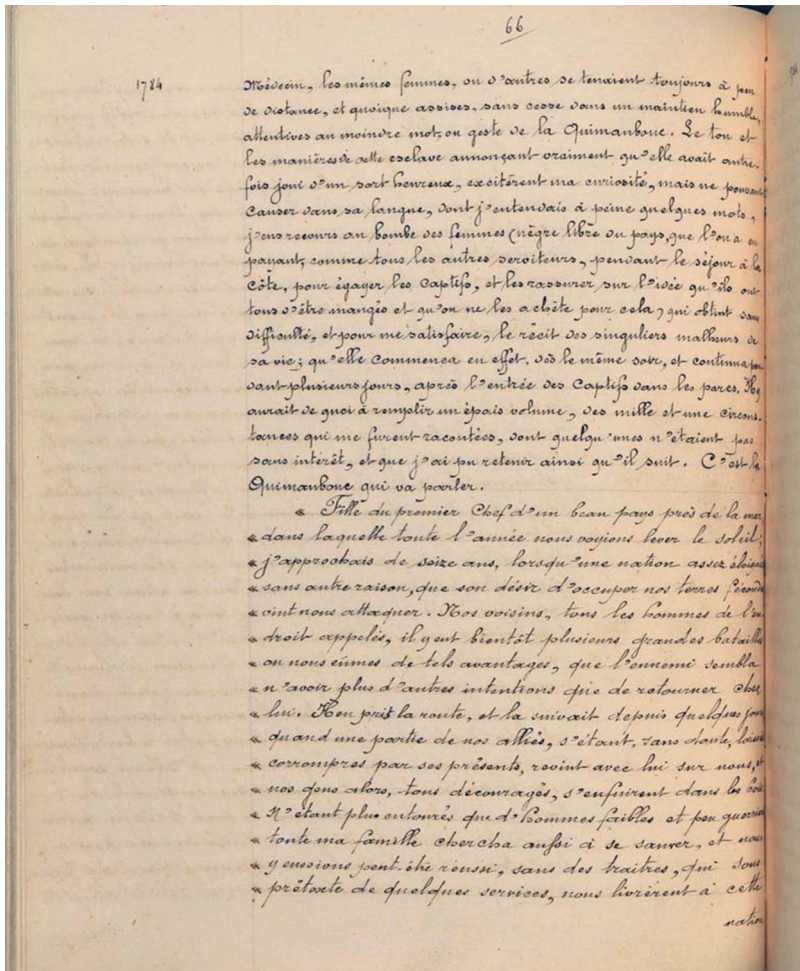 66
1784
Médecin, les mêmes femmes, ou d'autres se tenaient toujours à peu
de distance, et quoique assises, sans cesse dans un maintien humble,
attentives au moindre mot, ou geste de la Quimanboue. Le ton et
les manières de cette esclave annonçant vraiment qu'elle avait autre-
fois joui d'un sort heureux, excitèrent ma curiosité, mais ne pouvant
causer dans sa langue, dont j'entendais à peine quelques mots,
j'eus recours au bombe des femmes (nègre libre du pays, que l'on a en
payant, comme tous les autres serviteurs, pendant le séjour à la
côte, pour égayer les captifs, et les rassurer sur l'idée qu'ils ont
tous d'être mangés et qu'on ne les achète pour cela) qui obtint sans
difficulté, et pour me satisfaire, le récit des singuliers malheurs de
sa vie; qu'elle commenca en effet, dès le même soir, et continua pen
dant plusieurs jours, après l'entrée des Captifs dans les parcs. Il y
aurait de quoi à remplir un épais volume, des mille et une circons-
tances qui me furent racontées, dont quelqu'unes n'étaient pas
sans intérêt, et que j'ai pu retenir ainsi qu'il suit. C'est la
Quimanboue qui va parler.
« Fille du premier Chef d'un beau pays près de la mer
« dans laquelle toute l'année nous voyions lever le soleil;
« j'approchais de seize ans, lorsqu'une nation assez éloignée
« sans autre raison, que son désir d'occuper nos terres fécondes
« vint nous attaquer. Nos voisins, tous les hommes de l'en
« droit appelés, il y eut bientôt plusieurs grandes batailles
« ou nous eûmes de tels avantages, que l'ennemi sembla
« n'avoir plus d'autres intentions que de retourner chez
« lui. Il en prit la route, et la suivait depuis quelques jours
« quand une partie de nos alliés, s'étant, sans doute, laissé
« corrompres par ses présents, revint avec lui sur nous, et
« nos gens alors, tous découragés, s'enfuirent dans les bois
« N'étant plus entourés que d'hommes faibles et peu guerriers
« toute ma famille chercha aussi à se sauver, et nous
« y eussions peut-être réussi, sans des traitres, qui sous
« prétexte de quelques services, nous livrèrent à cette
nation